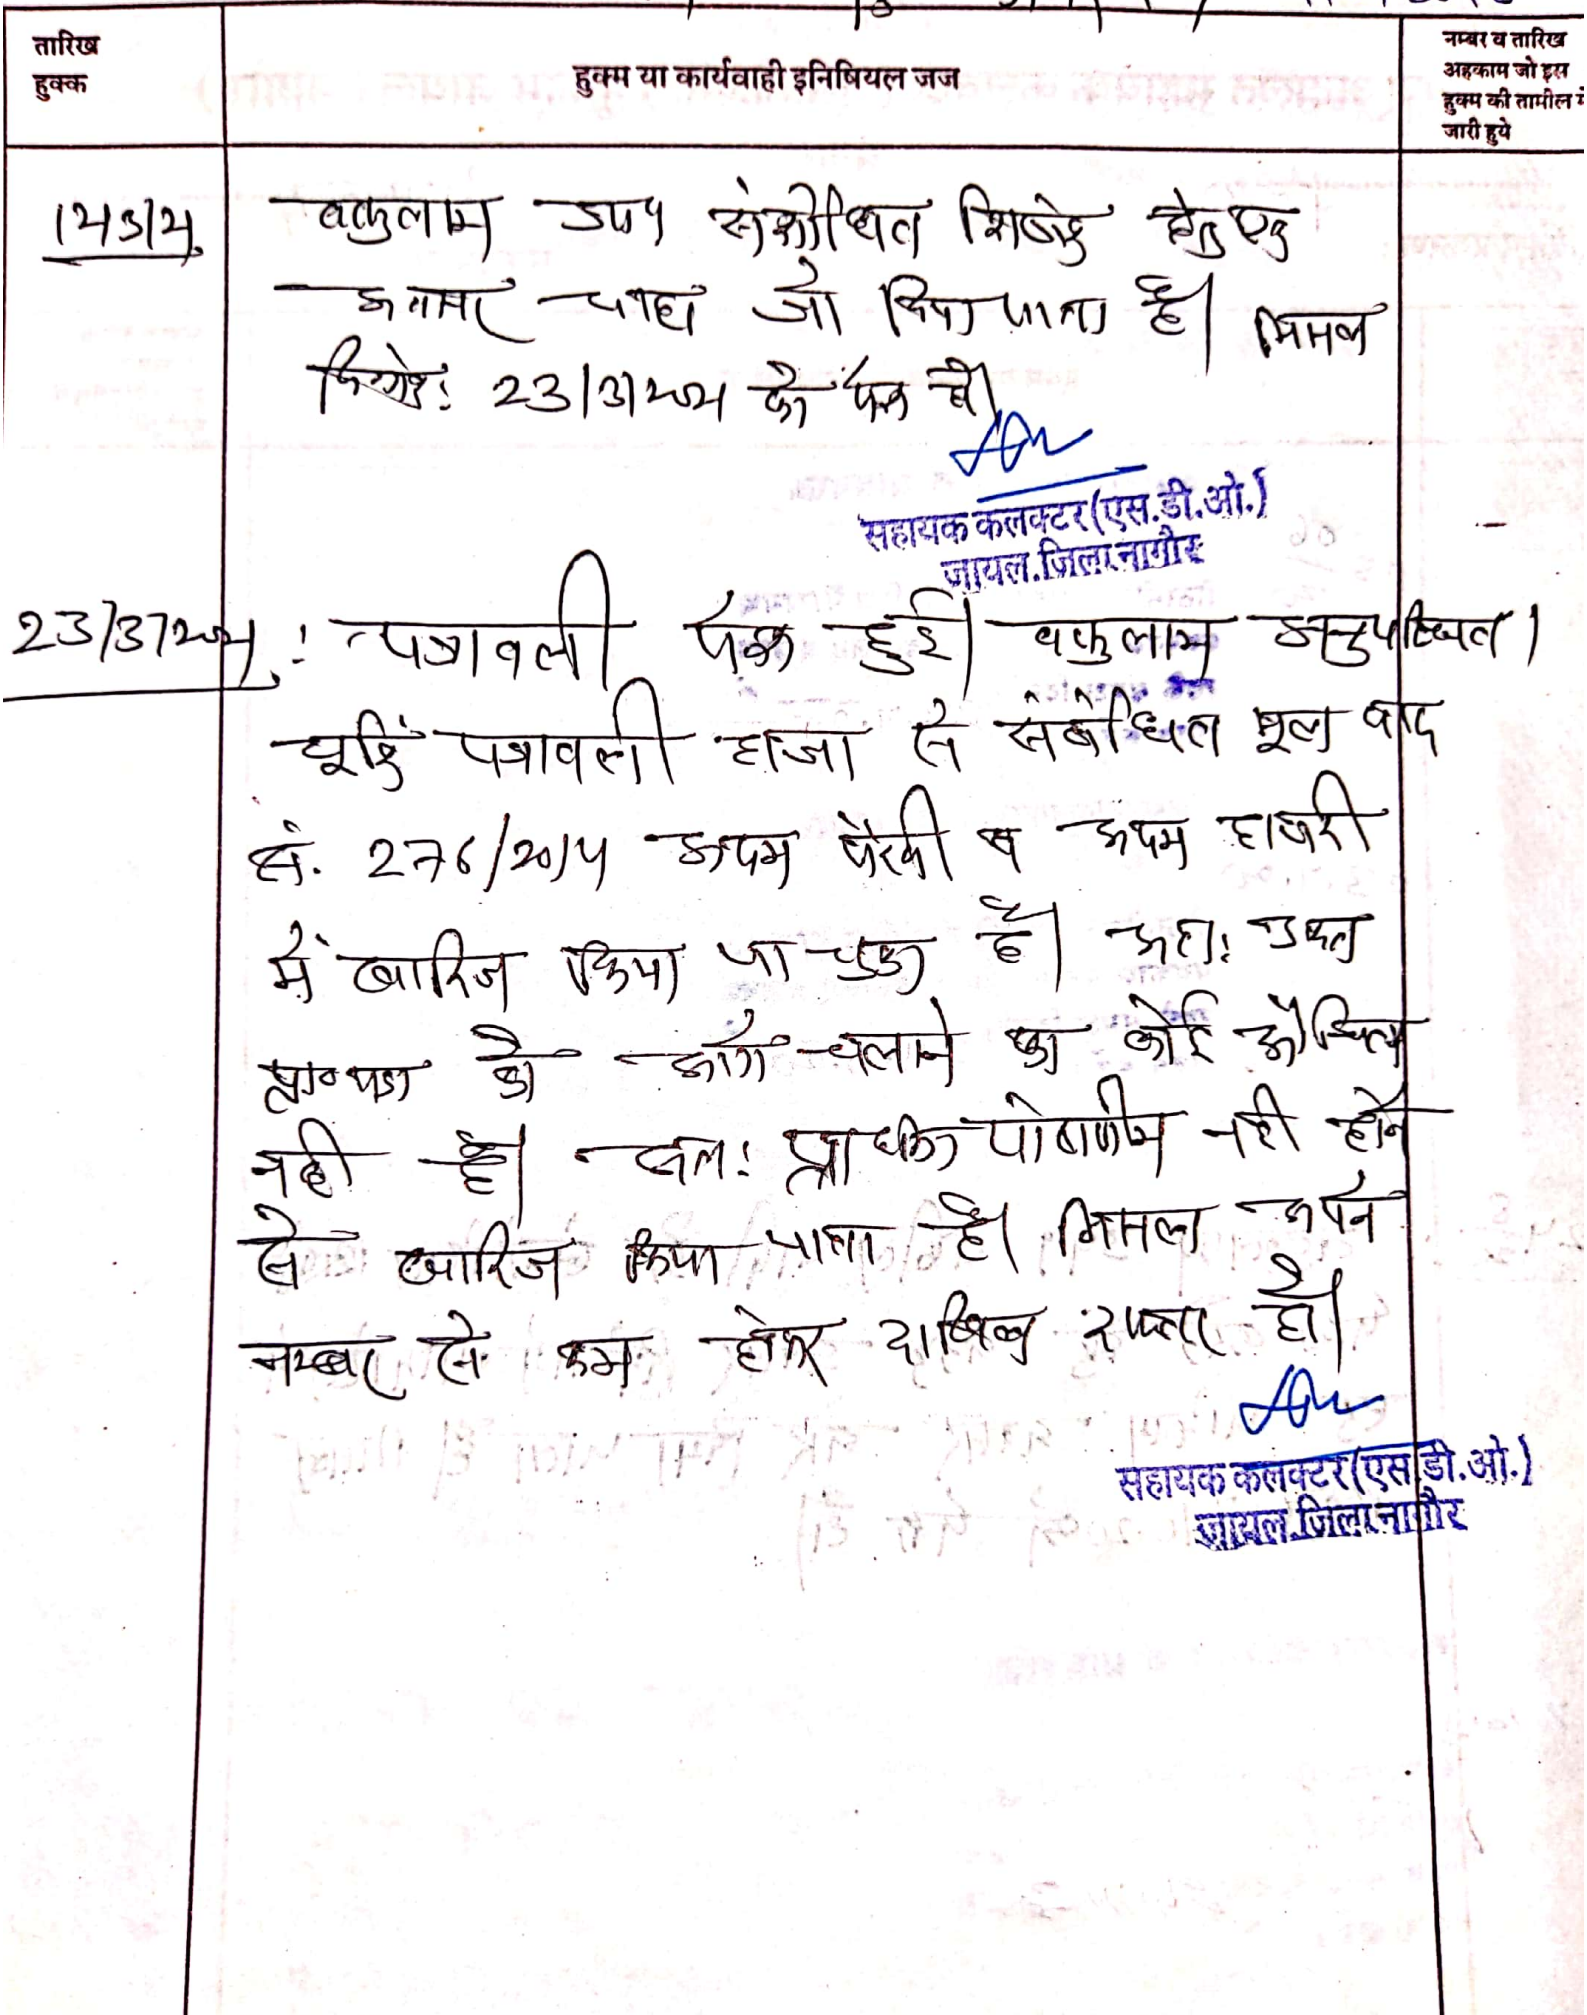 तारिख
हुक्क
हुक्म या कार्यवाही इनिषियल जज
नम्बर व तारिख
अहकाम जो इस
हुक्म की तामील में
जारी हुये
वकुलाम उप॰ संशोधित हेतु एक
चाहा जो किया जाता है। मिसल
23/3/2021 को पेश हो।
सहायक कलक्टर (एस.डी.ओ.)
जायल.जिला.नागौर
23/3/2021: पत्रावली पेश हुई। वकुलाम अनुपस्थित।
चूंकि पत्रावली हाजा से संबंधित मूल वाद
सं. 276/2014 अदम पैरवी व अदम हाजरी
में खारिज किया जा चुका है। अतः उक्त
को आगे चलाने का कोई औचित्य
नही है। अतः पोषणीय नही होने
से खारिज किया जाता है। मिसल अपने
नम्बर से कम होकर दाखिल दफ्तर हो।
सहायक कलक्टर (एस.डी.ओ.)
जायल.जिला.नागौर